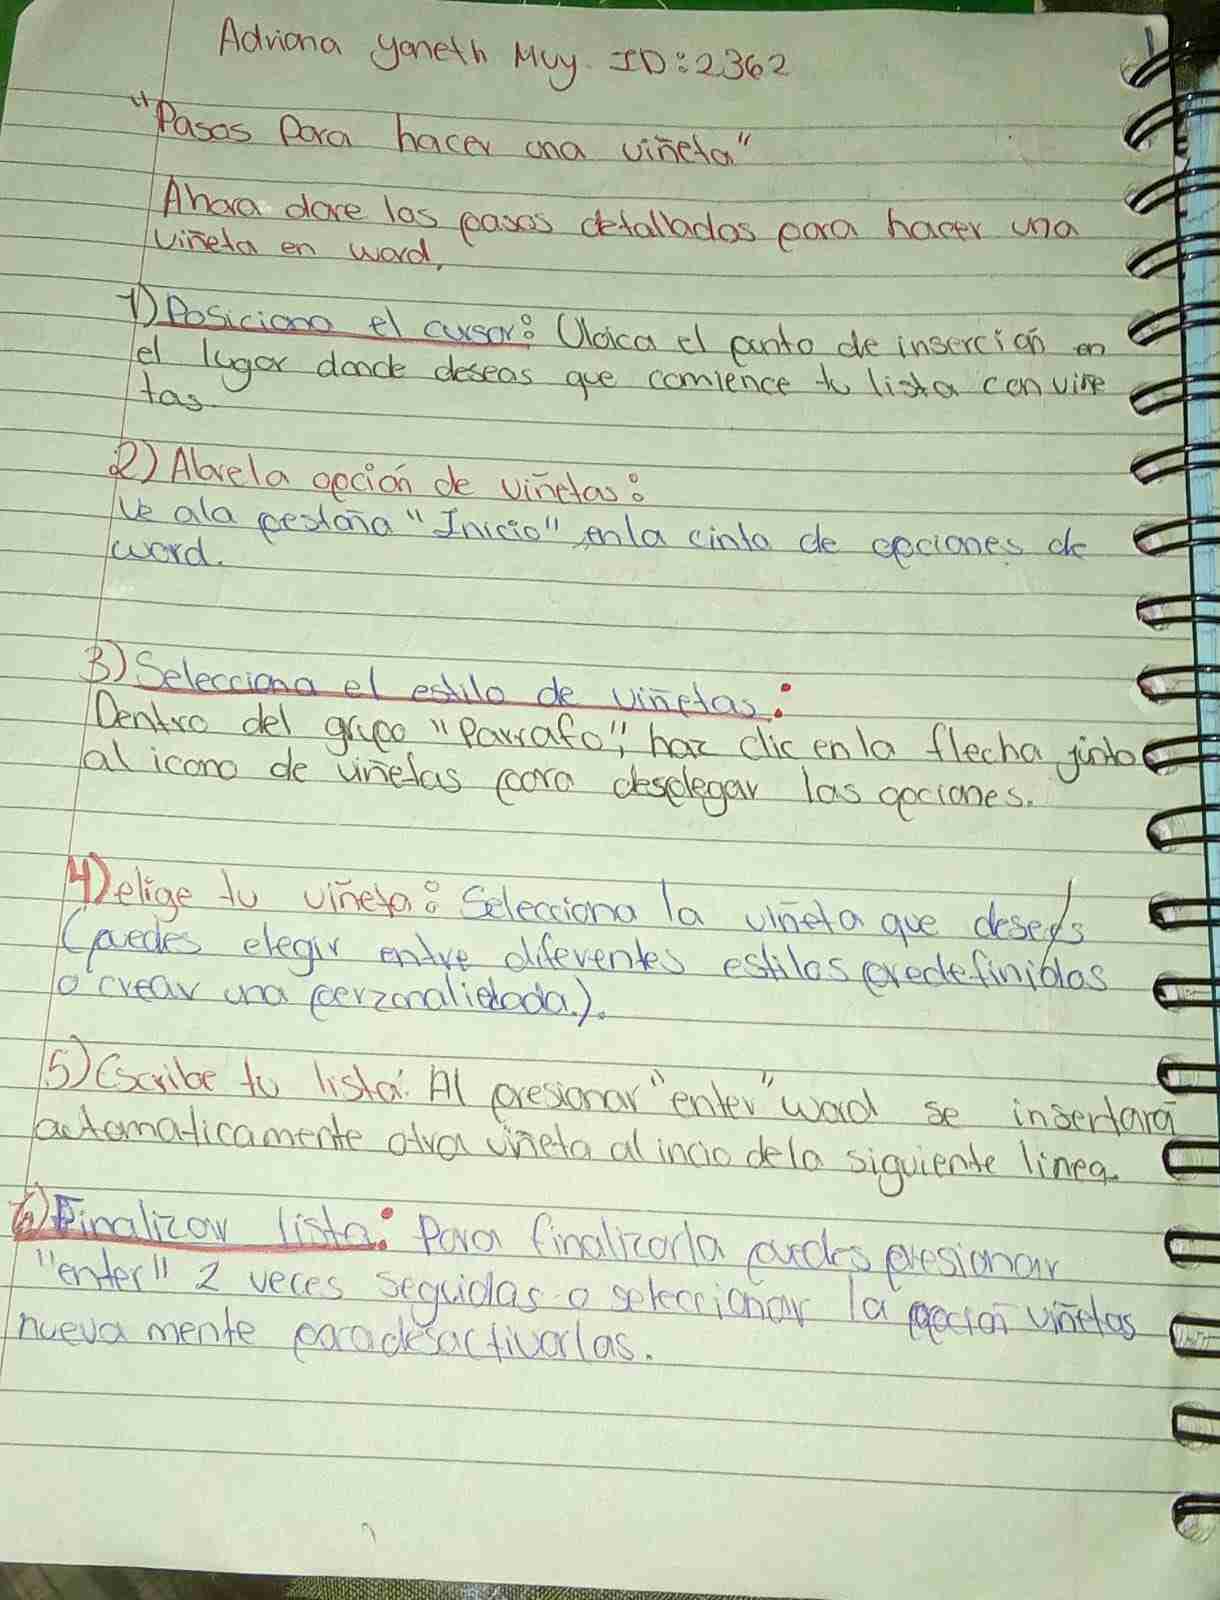 Adriana Yaneth Muy. ID:2362
"Pasos para hacer una viñeta"
Ahora dare los pasos detallados para hacer una
viñeta en word,
1) Posiciona el cursor: Ubica el punto de inserción en
el lugar donde deseas que comience tu lista con viñe
tas.
2) Abre la opción de viñetas:
Ve ala pestaña "Inicio" en la cinta de opciones de
word.
3) Selecciona el estilo de viñetas:
Dentro del grupo "Parrafo", haz clic en la flecha junto
al icono de viñetas para desplegar las opciones.
4) elige tu viñeta: Selecciona la viñeta que deseas
(puedes elegir entre diferentes estilos predefinidos
o crear una perzonalizada.).
5) Escribe tu lista: Al presionar "enter" word se insertará
automaticamente otra viñeta al incio de la siguiente linea.
6) Finalizar lista: Para finalizarla puedes presionar
"enter" 2 veces seguidas o seleccionar la opción viñetas
nueva mente para desactivarlas.